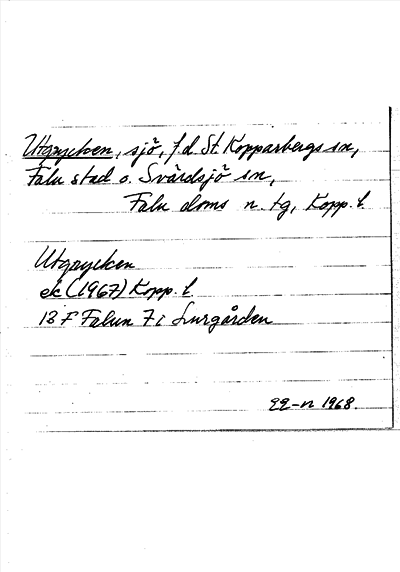 Utgrycken, sjö, f.d. St. Kopparbergs sn,
Falu stad o. Svärdsjö sn,
Falu doms n. tg, Kopp. l.
Utgrycken
ek (1967) Kopp. l
13 F Falun 7i Lurgården
1968.